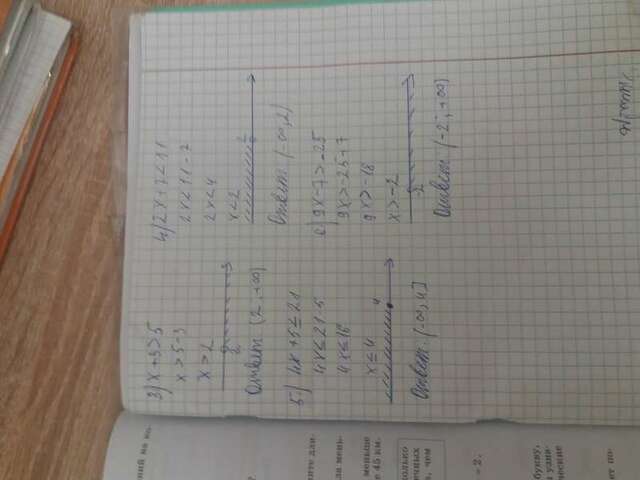 ений на ко-
3) x + 3 > 5
x > 5 - 3
x > 2
2
Ответ (2; +∞)
4) 2x + 7 < 11
2x < 11 - 7
2x < 4
x < 2
2
Ответ (-∞; 2)
5) 4x + 5 ≤ 21
4x ≤ 21 - 5
4x ≤ 16
x ≤ 4
4
Ответ: (-∞; 4]
6) 9x - 7 > -25
9x > -25 + 7
9x > -18
x > -2
-2
Ответ (-2; +∞)
?
ите дли-
ла мень-
меньше
е 45 км-
колько
ечных
а, чем
= 2.
букву,
и узна-
ческие
ет по-